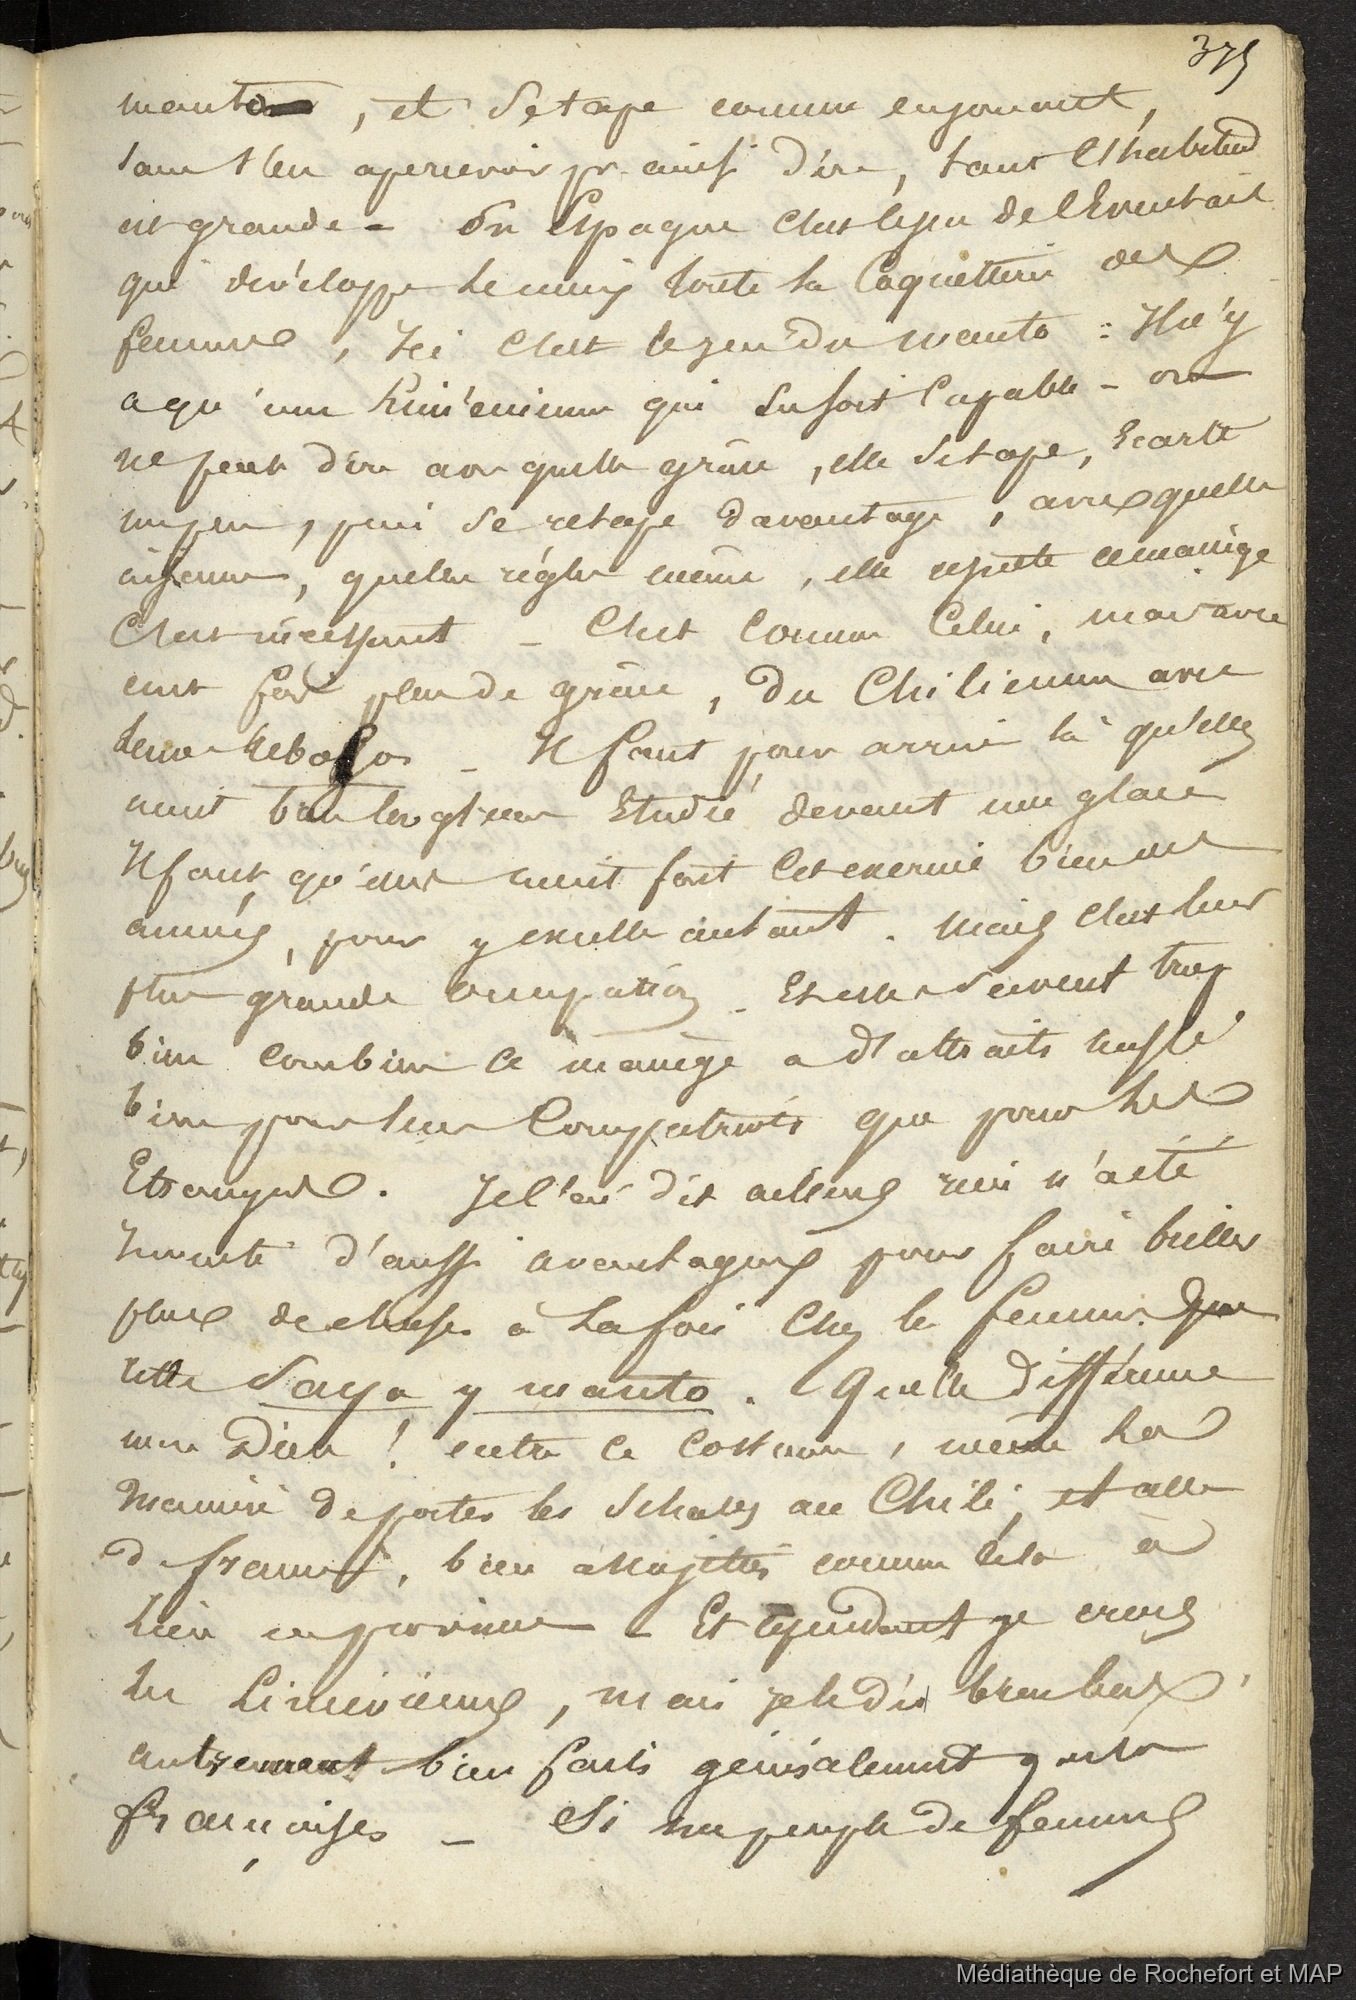 375
manto, et se tape comme en jouant,
sans s'en apercevoir pr ainsi dire, tant l'habitud
est grande - En Espagne c'est le jeu de l'Eventail
qui développe le mieux toute la Coquetterie des
femmes, Ici c'est le jeu du manto : Il n'y
a qu'une Liménienne qui en soit Capable - on
ne peut dire avec quelle grâce, elle se tape, Ecarte
un peu, puis se retape davantage, avec quelle
aisance, quelles règles même, elle repette ce manège
C'est incessant - C'est comme Celui, mais avec
cent fois plus de grâce, des Chiliennes avec
leurs Rebosos - Il faut pour arriver là qu'elles
aient bien longtems Etudié devant une glace
Il faut qu'elles aient fait cet exercice bien des
années, pour y exceller autant. Mais c'est leur
plus grande occupation - Et elles savent trop
bien combien ce manège a d'attraits aussi
bien pour leurs Compatriotes que pour les
Etrangers. Je l'ai dit ailleurs rien n'a été
Inventé d'aussi avantageux pour faire briller
plus de choses à la fois Chez la femme. Que
cette Saya y manto. Quelle différence
mon Dieu ! entre ce costume, même la
Manière de porter les Schalls au Chili, et celle
de france, bien assujettis comme cela à
lieu en province - Et cependant je crois
les Liméniennes, mais je le dis bien bas,
autrement bien faites généralement que les
françaises - Si un peuple de femmes
Médiathèque de Rochefort et MAP